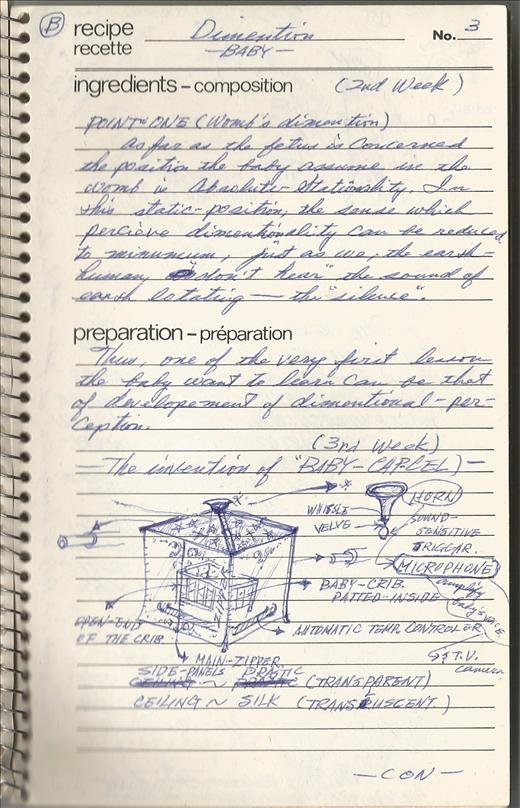 B recipe Dimention No. 3
recette —BABY—
ingredients – composition (2nd Week)
POINT-ONE (Womb's dimention)
As far as the fetus is concerned
the position the baby assume in the
womb is Absolute-Stationality. In
this static-position, the sense which
percieve dimentionality can be reduced
to minumum, just as we, the earth-
human "don't hear" the sound of
earth rotating — the "silence".
preparation – préparation
Thus, one of the very first lesson
the baby want to learn can be that
of developement of dimentional-per-
ception.
(3rd Week)
—The invention of "BABY-CAPCEL)—
WHISSLE
VELVE
HORN
SOUND-
SENSITIVE
TRIGGAR.
MICROPHONE
amplify
baby's voice
BABY-CRIB.
PATTED-INSIDE
OPEN-END
OF THE CRIB.
AUTOMATIC TEMP. CONTROLER
& T.V.
camera
MAIN-ZIPPER
SIDE-PANELS PLASTIC
CEILING ~ (TRANSPARENT)
CEILING ~ SILK (TRANSLUSCENT)
—CON—